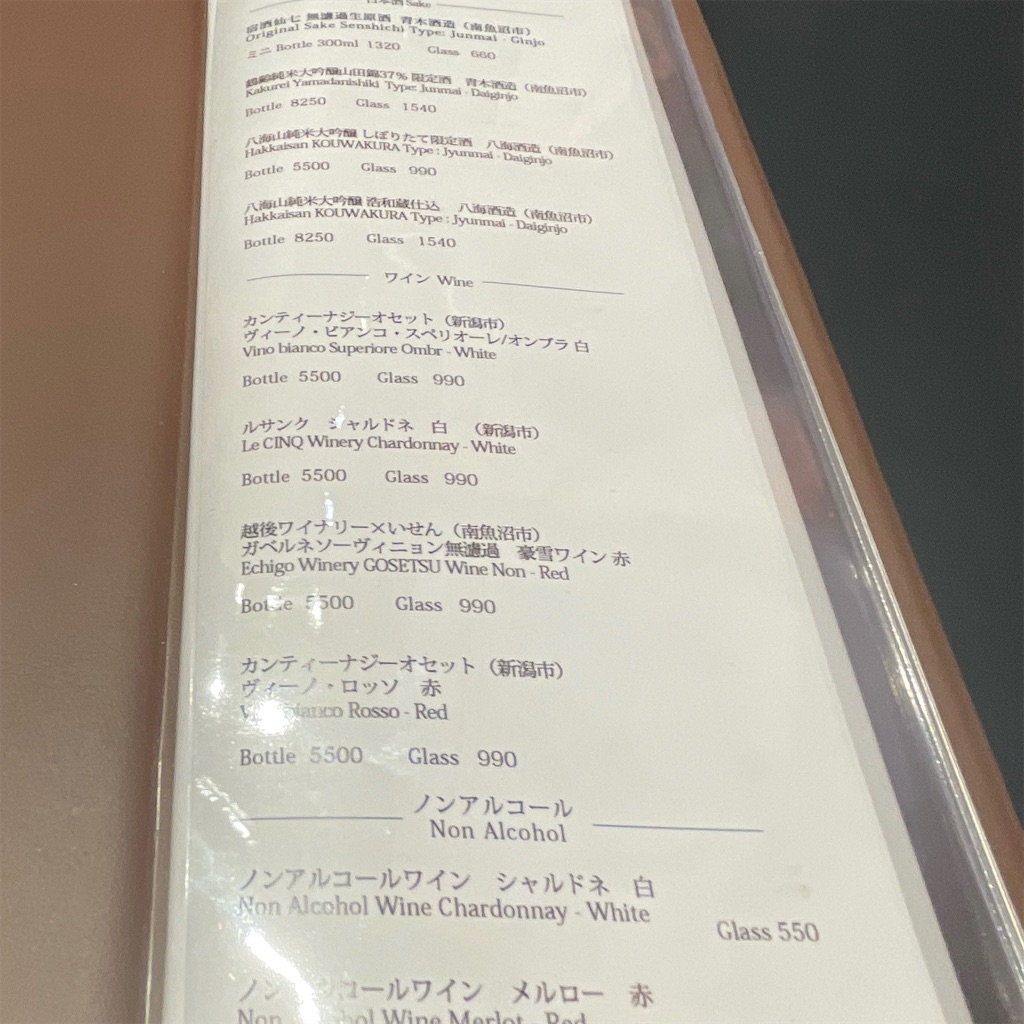 日本酒 Sake
宿酒仙七 無濾過生原酒 青木酒造（南魚沼市）
Original Sake Senshichi Type: Junmai - Ginjo
ミニ Bottle 300ml 1320 Glass 660
鶴齢純米大吟醸山田錦37% 限定酒 青木酒造（南魚沼市）
Kakurei Yamadanishiki Type: Junmai - Daiginjo
Bottle 8250 Glass 1540
八海山純米大吟醸 しぼりたて限定酒 八海酒造（南魚沼市）
Hakkaisan KOUWAKURA Type : Jyunmai - Daiginjo
Bottle 5500 Glass 990
八海山純米大吟醸 浩和蔵仕込 八海酒造（南魚沼市）
Hakkaisan KOUWAKURA Type : Jyunmai - Daiginjo
Bottle 8250 Glass 1540
ワイン Wine
カンティーナジーオセット（新潟市）
ヴィーノ・ビアンコ・スペリオーレ/オンブラ 白
Vino bianco Superiore Ombr - White
Bottle 5500 Glass 990
ルサンク シャルドネ 白 （新潟市）
Le CINQ Winery Chardonnay - White
Bottle 5500 Glass 990
越後ワイナリー×いせん（南魚沼市）
ガベルネソーヴィニョン無濾過 豪雪ワイン 赤
Echigo Winery GOSETSU Wine Non - Red
Bottle 5500 Glass 990
カンティーナジーオセット（新潟市）
ヴィーノ・ロッソ 赤
bianco Rosso - Red
Bottle 5500 Glass 990
ノンアルコール
Non Alcohol
ノンアルコールワイン シャルドネ 白
Non Alcohol Wine Chardonnay - White
Glass 550
ノンアルコールワイン メルロー 赤
Non Alcohol Wine Merlot - Red